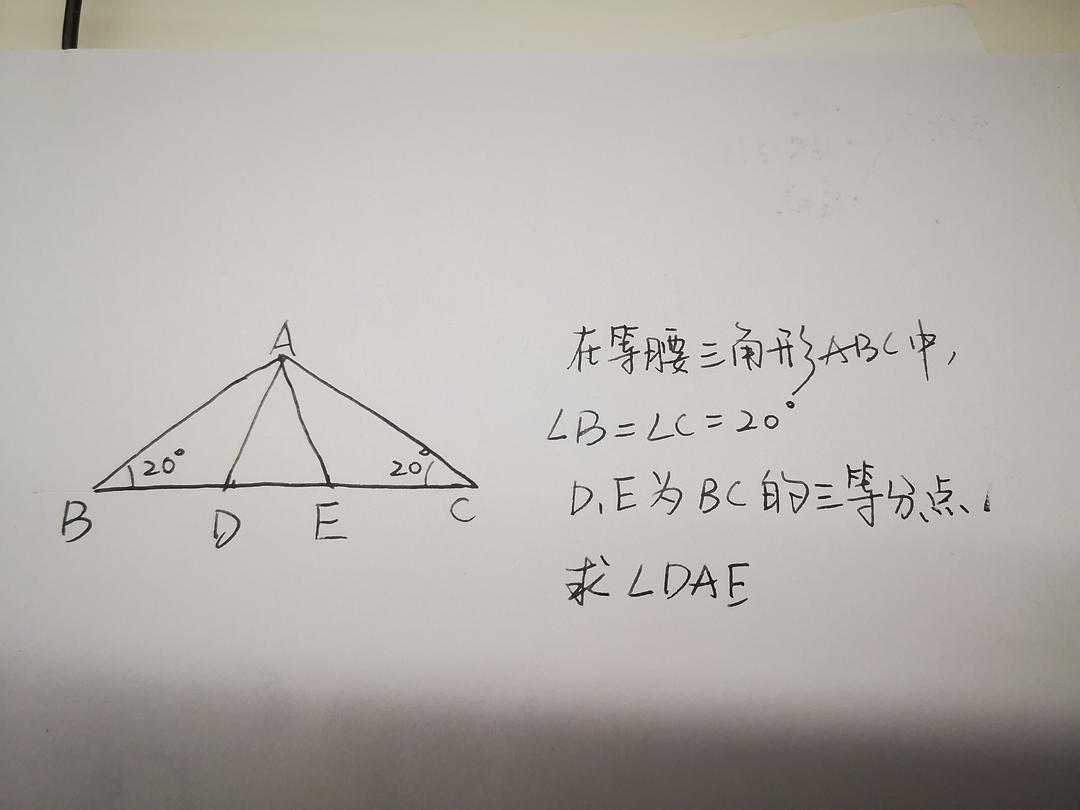 A
20°
20°
B
D
E
C
在等腰三角形ABC中,
∠B=∠C=20°
D、E为BC的三等分点、
求∠DAE